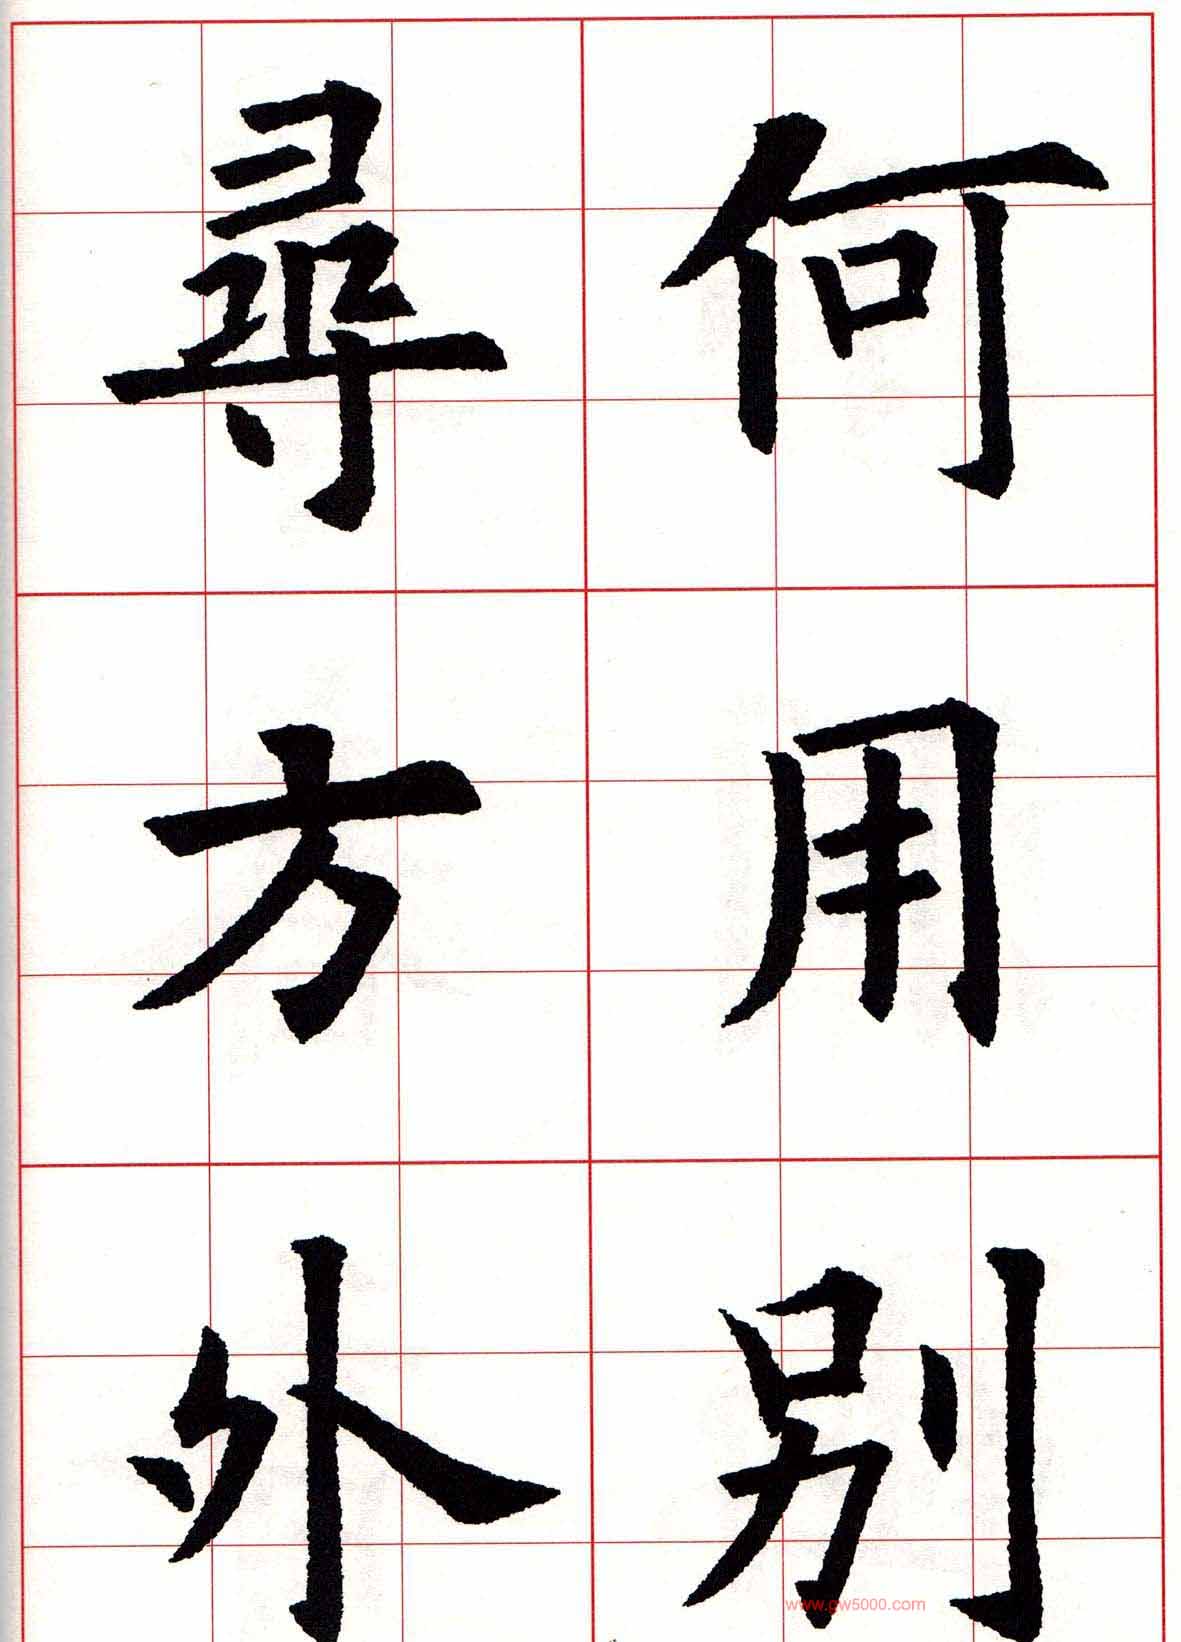 何用別
尋方外
www.gw5000.com